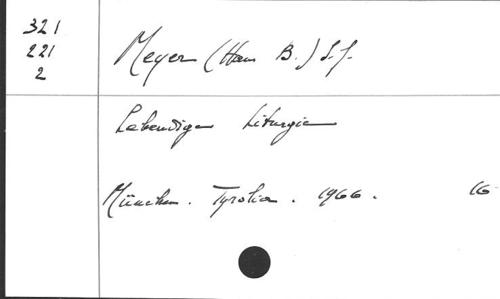 321
221
2
Meyer (Hans B.) S.J.
Lebendige Liturgie
München. Tyrolia. 1966. 16